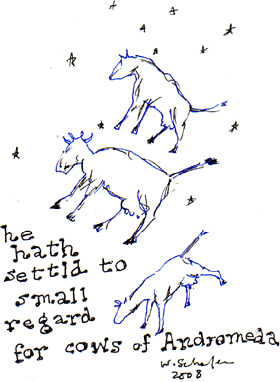 he
hath
settld to
small
regard
for cows of Andromeda
W. Schafer
2008